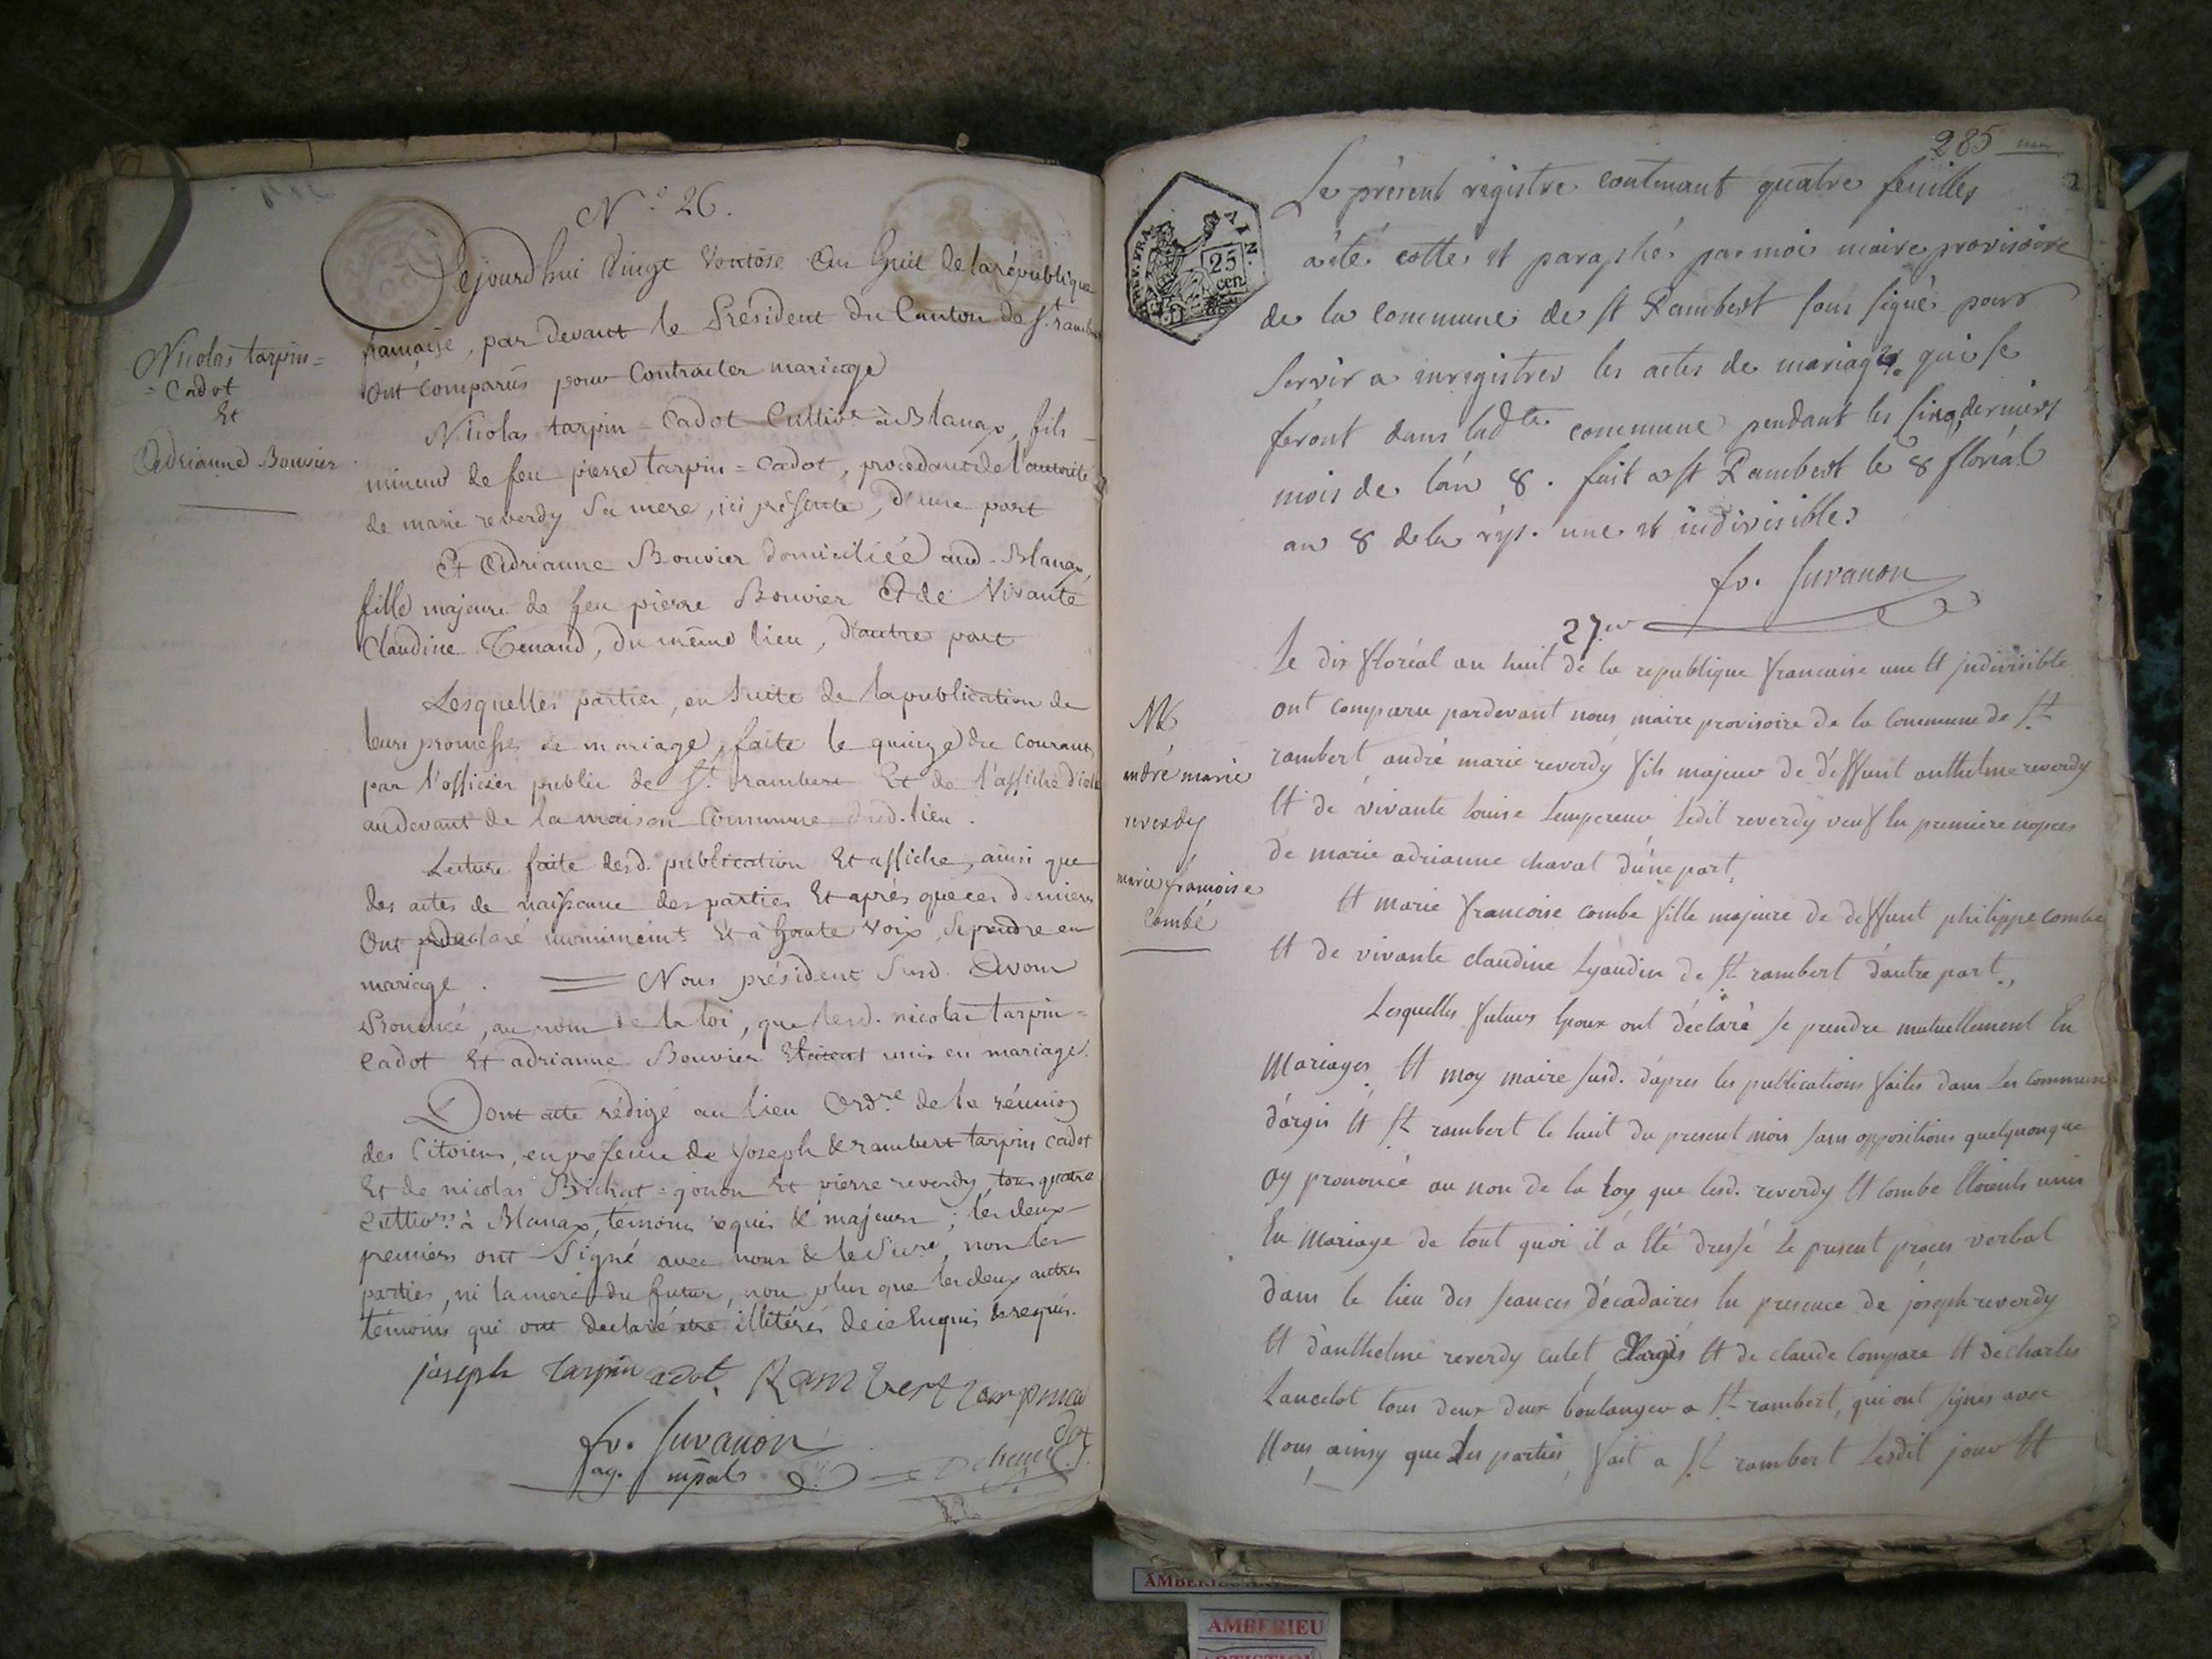 N.° 26.
Cejourd'hui Vingt Ventôse an huit de la république
française, par devant le Président du Canton de St. rambert
Ont comparûs pour Contracter mariage
Nicolas tarpin =
= Cadot
Et
Adrianne Bouvier
Nicolas tarpin = Cadot Cultivr. à Blanaz, fils
mineur de feu pierre tarpin = Cadot, procédant de l'autorité
de marie reverdy Sa mere, ici présente, d'une part
Et Adrianne Bouvier domiciliée aud. Blanaz,
fille majeure de feu pierre Bouvier Et de Vivante
Claudine Tenand, du même lieu, d'autre part
Lesquelles parties, en suite de la publication de
leurs promesses de mariage, faite le quinze du courant,
par l'officier public de St. rambert Et de l'affiche d'icelle
au devant de la maison Commune dud. lieu.
Lecture faite desd. publication Et affiche, ainsi que
des actes de naissance des parties Et après que ces derniers
Ont déclaré unanimement Et à haute voix se prendre en
mariage. = Nous président Susd. Avons
Prononcé, au nom de la loi, que lesd. nicolas tarpin =
Cadot Et adrianne Bouvier Etoient unis en mariage.
Dont acte rédigé au lieu Ordre. de la réunion
des Citoiens, en présence de Joseph & rambert tarpin cadot
Et de nicolas Brichat = gonon Et pierre reverdy, tous quatre
Cultivrs. à Blanaz, témoins requis & majeurs; les deux
premiers ont Signé avec nous & le Sécré. non les
parties, ni la mere du futur, non plus que les deux autres
témoins qui ont declaré etre illitérés de ce Enquis & requis.
joseph tarpin cadot. Rambert tarpin ca
dot
fr. Juvanon
ag. mpal
285
RÉP. FRA.
AIN.
25
cen.
Le présent régistre contenant quatre feuilles
a été cotté et paraphé par moi maire provisoire
de la commune de St Rambert sous signé pour
servir a enregistrer les actes de mariages qui se
feront dans ladte commune pendant les cinq derniers
mois de l'an 8. fait a St Rambert le 8 floréal
an 8 de la rép. une et indivisible
fr. Juvanon
27
Le dix floréal an huit de la republique francaise une Et indivisible
ont comparu pardevant nous maire provisoire de la Commune de St
rambert andré marie reverdy fils majeur de deffunt anthelme reverdy
Et de vivante louise Lempereur Ledit reverdy veuf En premiere nopces
de marie adrianne chavat d'une part,
andré marie
reverdy
marie françoise
Combe
Et marie francoise combe fille majeure de deffunt philippe combe
Et de vivante claudine Lyaudin de St rambert d'autre part.,
Lesquelles futurs Epoux ont déclaré se prendre mutuellement En
Mariages. Et moy maire susd. d'apres les publications faites dans les commun
d'argis Et St rambert le huit du present mois sans oppositions quelquonque
ay prononcé au non de la Loy que lesd. reverdy Et combe Etoients unis
En Mariage de tout quoi il a Eté dressé le present proces verbal
dans le lieu des seances décadaires En presence de joseph reverdy
Et d'anthelme reverdy culet d'argis Et de claude Compare Et de charles
Lancelot tous deux deux boulanger a St rambert, qui ont signés avec
Nous ainsy que les parties, fait a St rambert Lesdit jour Et
AMBERIEU